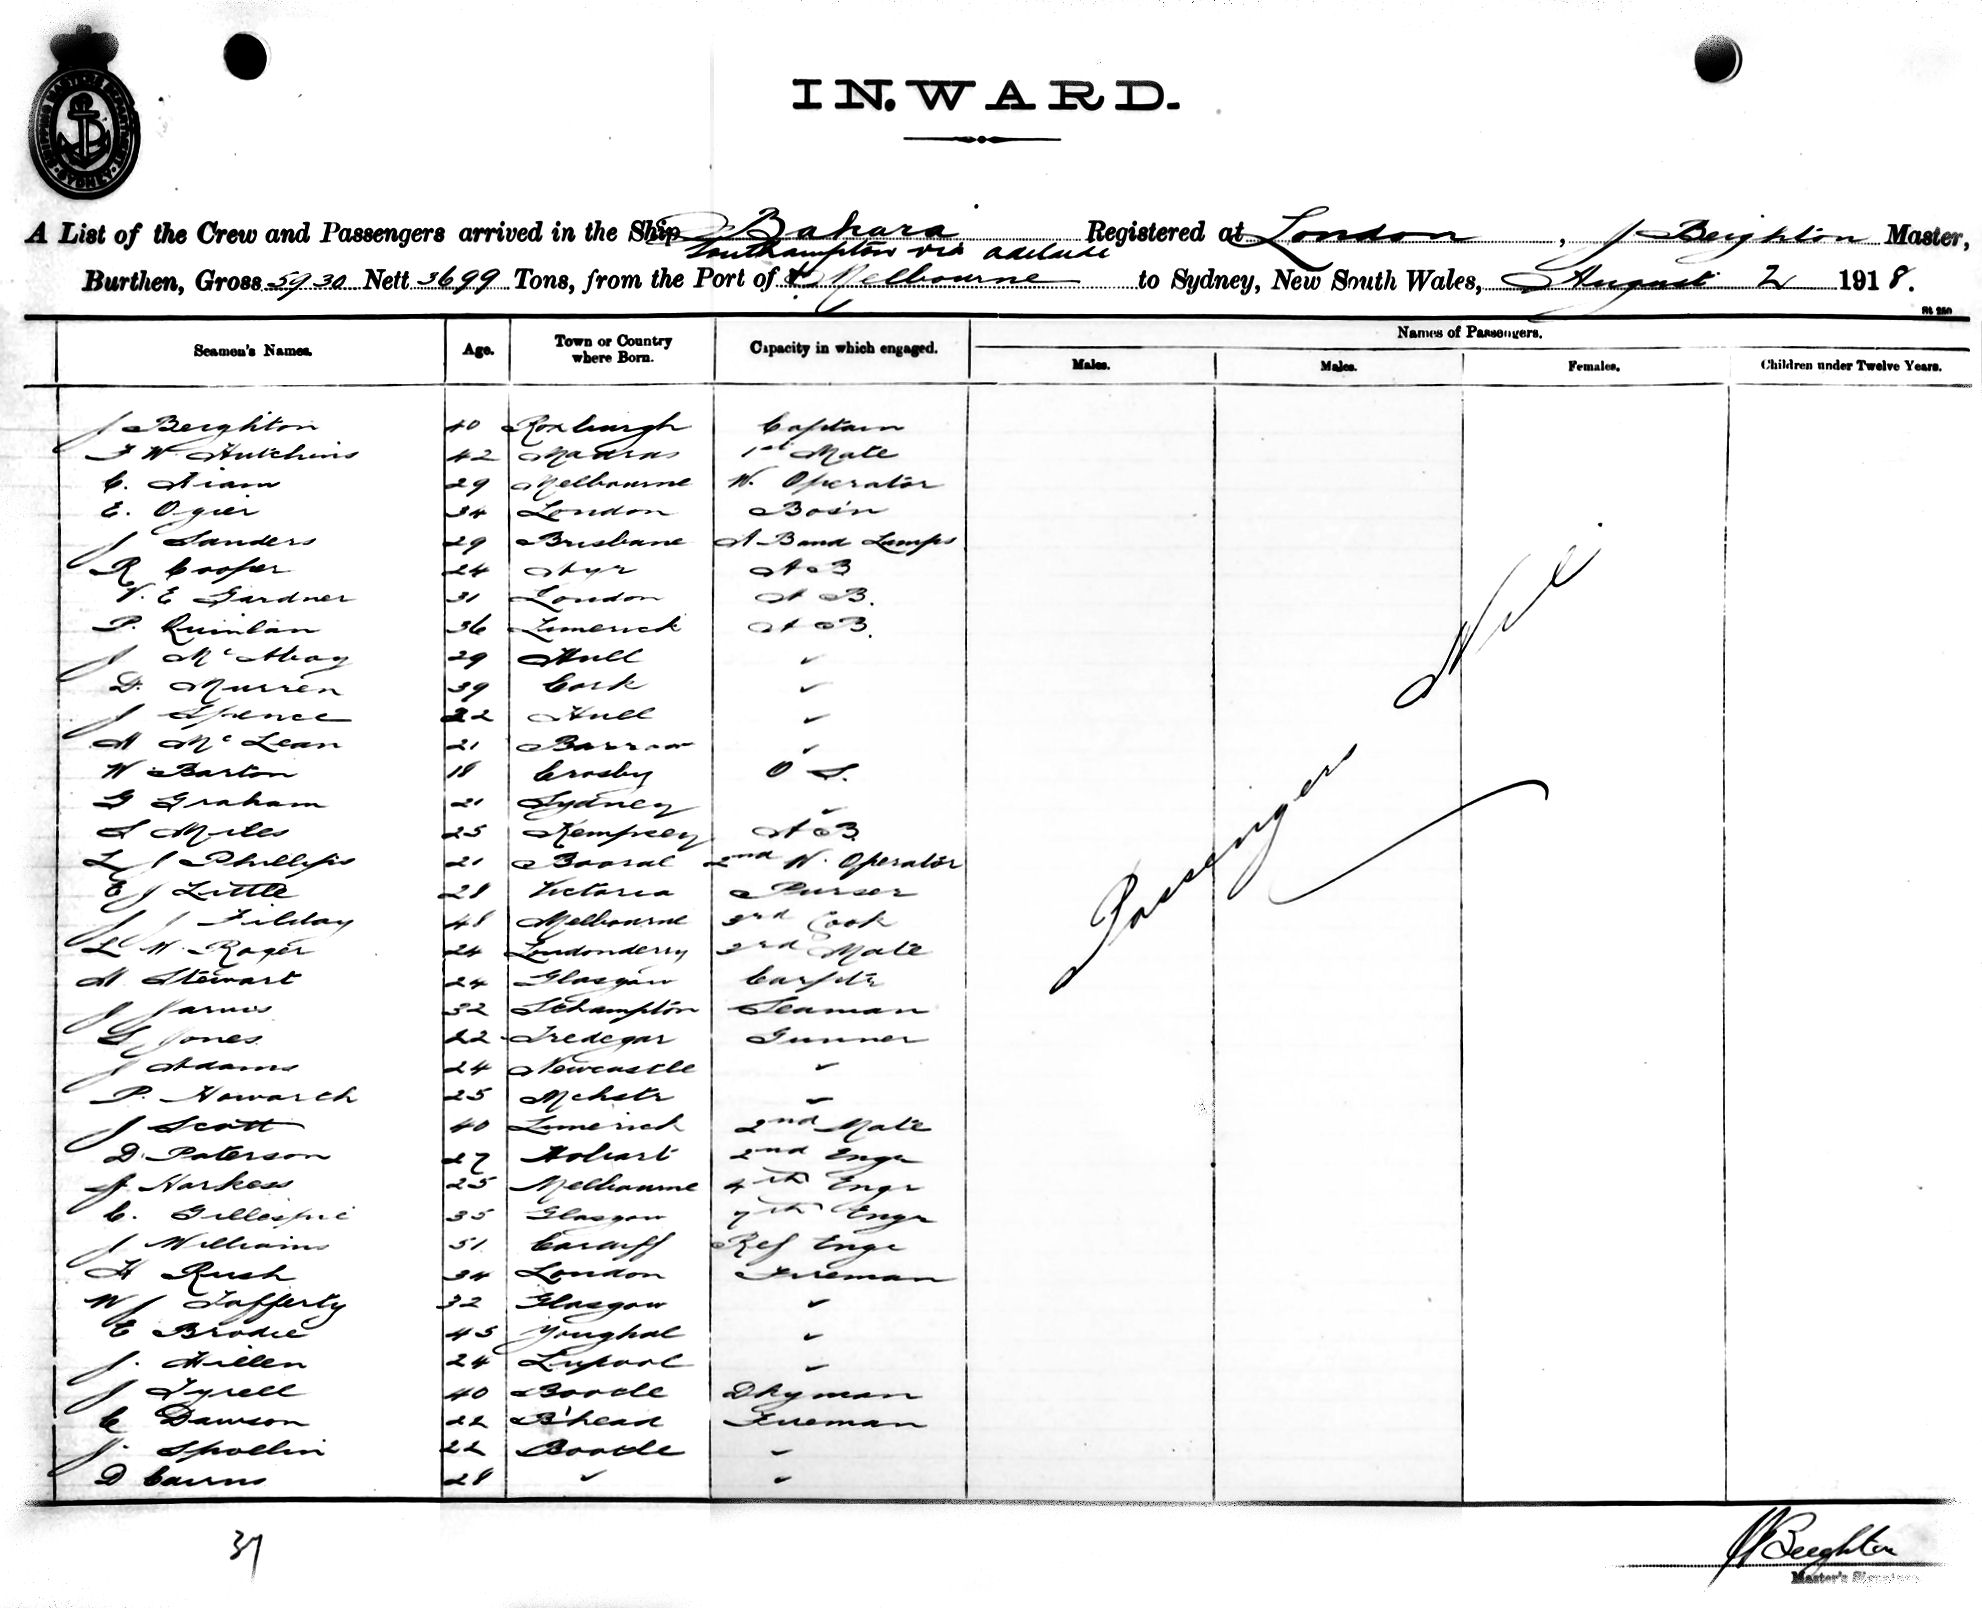 SHIPPING MASTERS DEPARTMENT SYDNEY
INWARD.
A List of the Crew and Passengers arrived in the Ship Bahara Registered at London, J Beighton Master,
Southampton via adelaide
Burthen, Gross 5930 Nett 3699 Tons, from the Port of & Melbourne to Sydney, New South Wales, August 2 1918.
Names of Passengers.
Seamen's Names. Age. Town or Country where Born. Capacity in which engaged. Males. Males. Females. Children under Twelve Years.
J Beighton 40 Roxburgh Captain
F W Hutchins 42 Madras 1st Mate
C. 29 Melbourne W. Operator
E. Ogier 34 London Bos'n
J Sanders 29 Brisbane A B and Lamps
R Cooper 24 Ayr A B
V. E Gardner 31 London A B.
P. Quinlan 36 Limerick A B.
J Mc 29 Hull "
D. Murren 39 Cork "
J Spence 22 Hull "
H Mc Lean 21 Barrow "
W Barton 18 Crosby O S.
G Graham 21 Sydney "
S Miles 25 Kempsey A B.
L J Phillips 21 Booral 2nd W. Operator
E J Little 28 Victoria Purser
J J Filday 48 Melbourne 3rd Cook
L W. Roger 24 Londonderry 3rd Mate
H Stewart 24 Glasgow Carptr
J Jarvis 32 Sthampton Seaman
G Jones 22 Tredegar Gunner
J Adams 24 Newcastle "
P. Howarth 25 Mchstr "
J Scott 40 Limerick 2nd Mate
D. Paterson 27 Hobart 2nd Engr
J Harkess 25 Melbourne 4th Engr
C. Gillespie 35 Glasgow 7th Engr
J Williams 51 Cardiff Ref Engr
H Rush 34 London Fireman
W J Lafferty 32 Glasgow "
E Brodie 45 Youghal "
J. Hillen 24 L'pool "
J Tyrell 40 Bootle Dkyman
C Dawson 22 B'head Fireman
J. Spollin 22 Bootle "
D Cairns 28 " "
Passengers Nil
37
J Beighton
Master's Signature